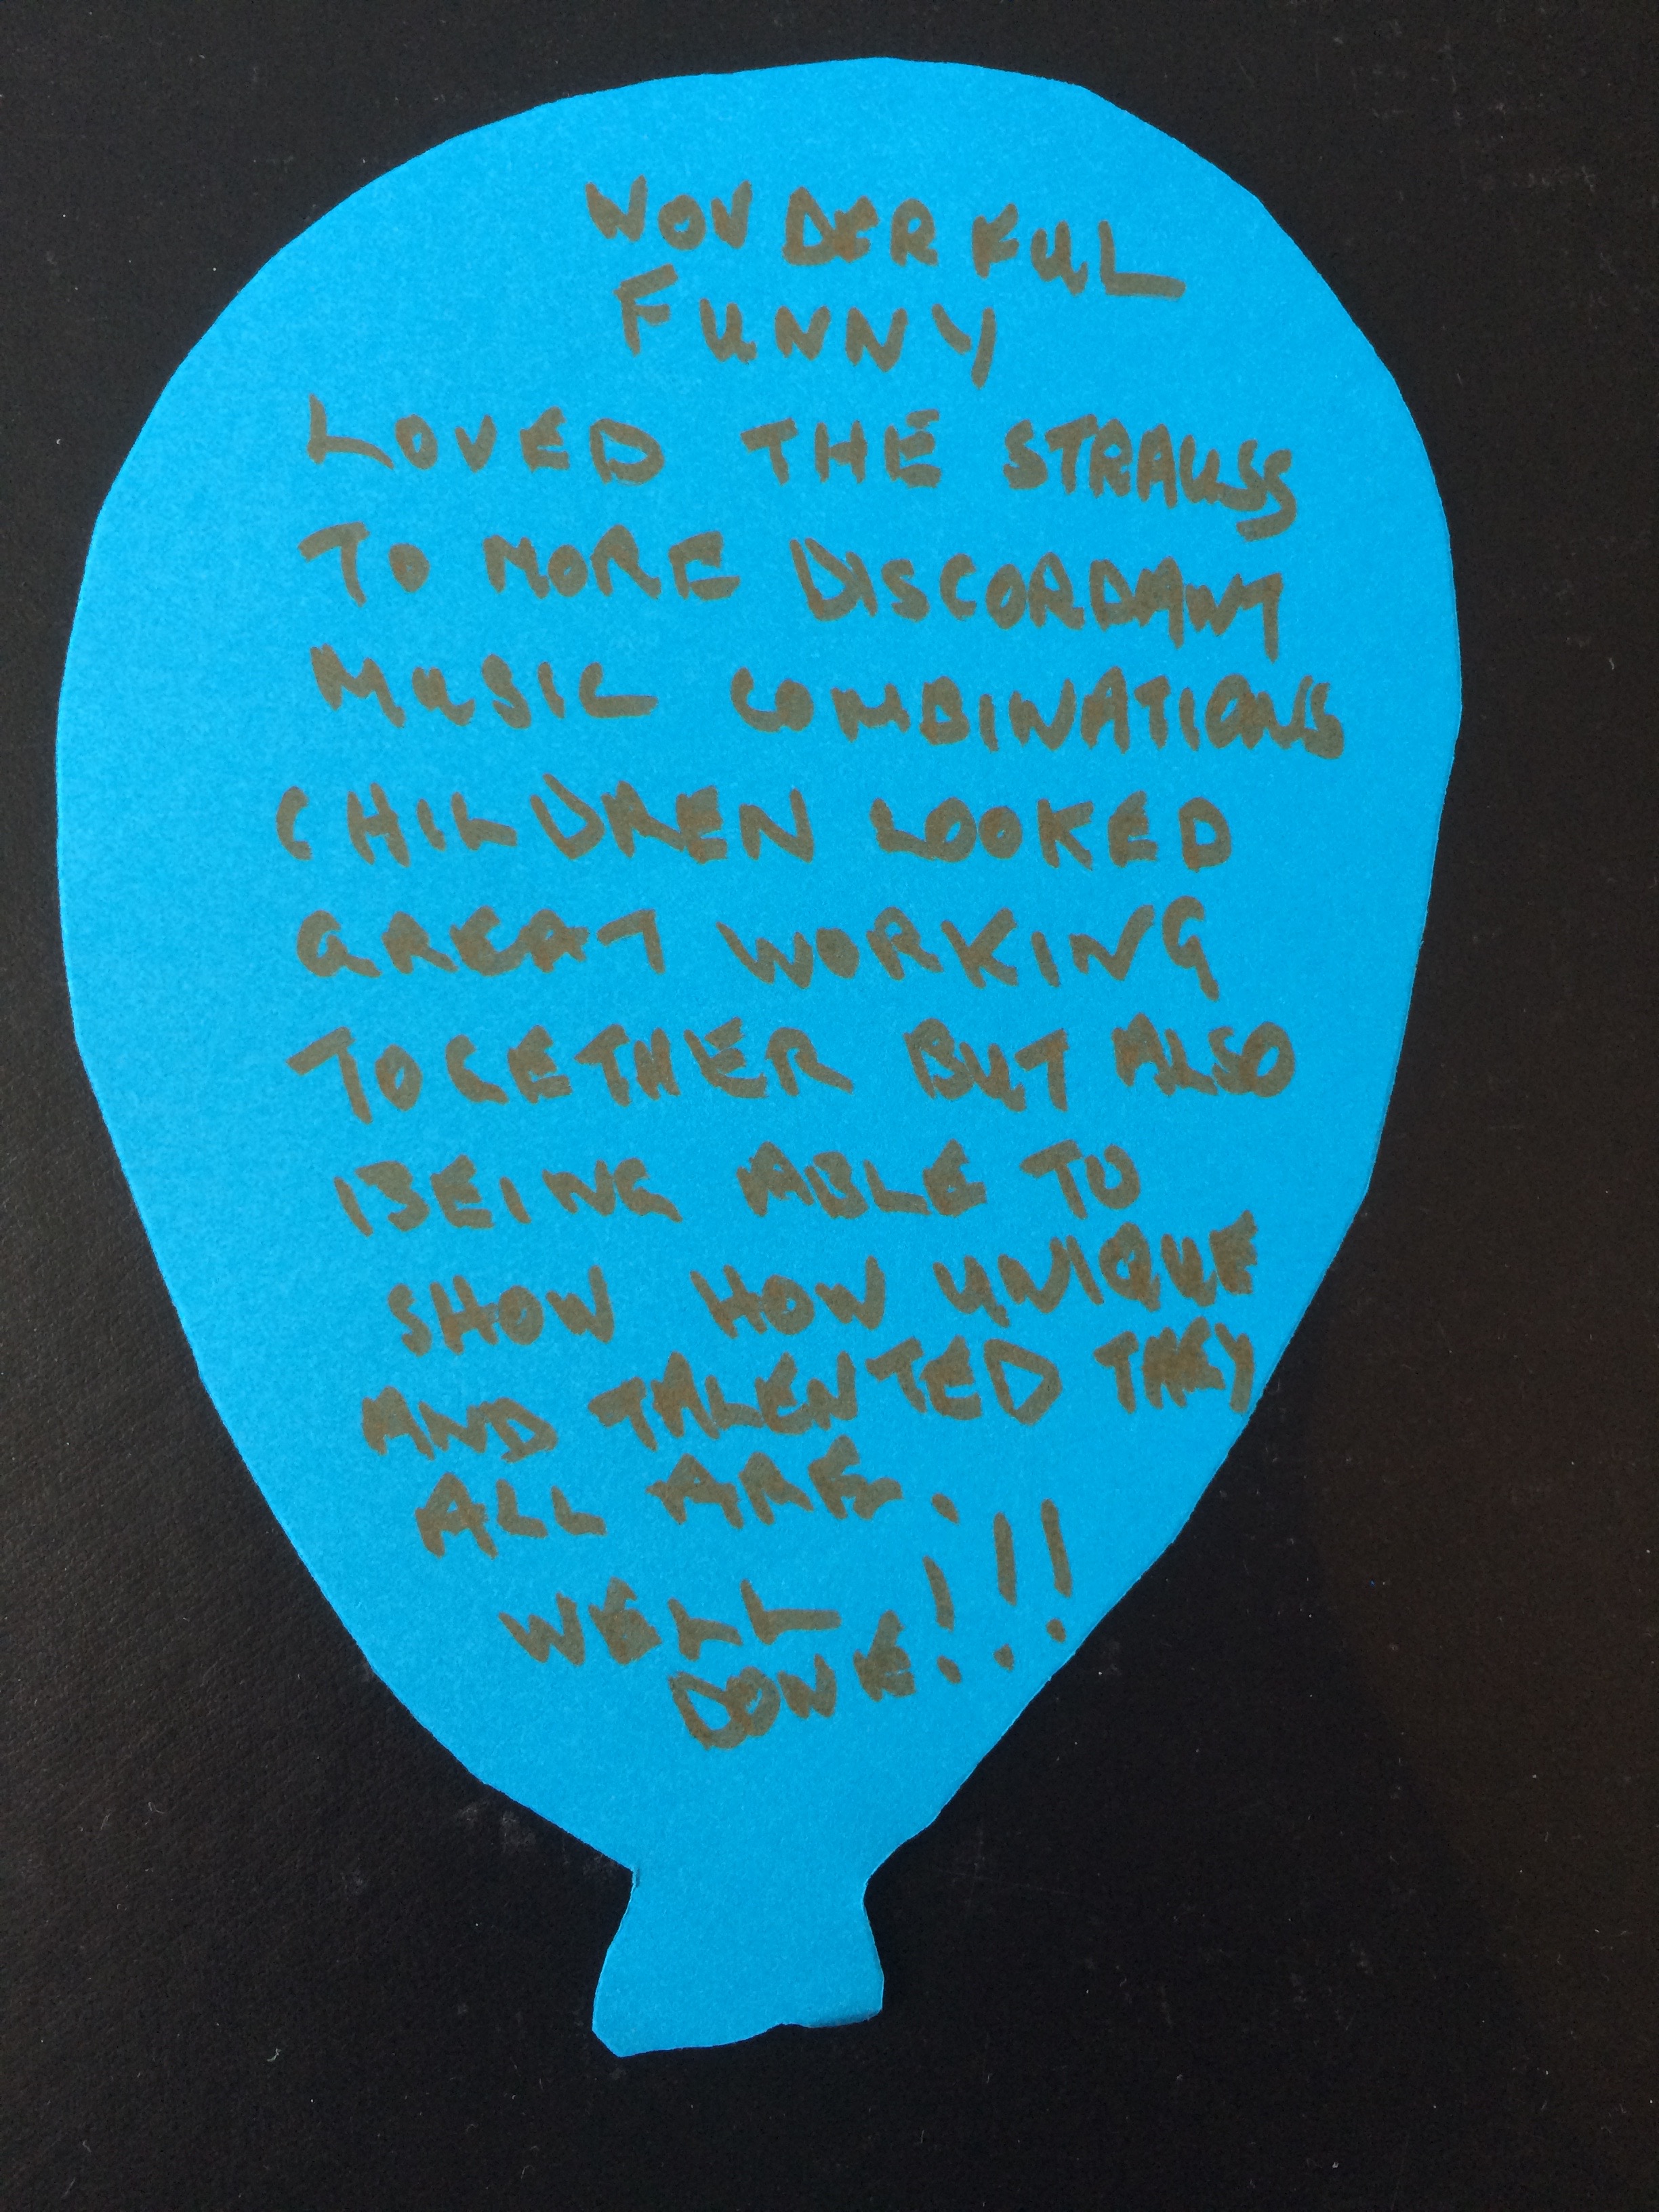 WONDERFUL
FUNNY
LOVED THE STRAUSS
TO MORE DISCORDANT
MUSIC COMBINATIONS
CHILDREN LOOKED
GREAT WORKING
TOGETHER BUT ALSO
BEING ABLE TO
SHOW HOW UNIQUE
AND TALENTED THEY
ALL ARE.
WELL
DONE!!!